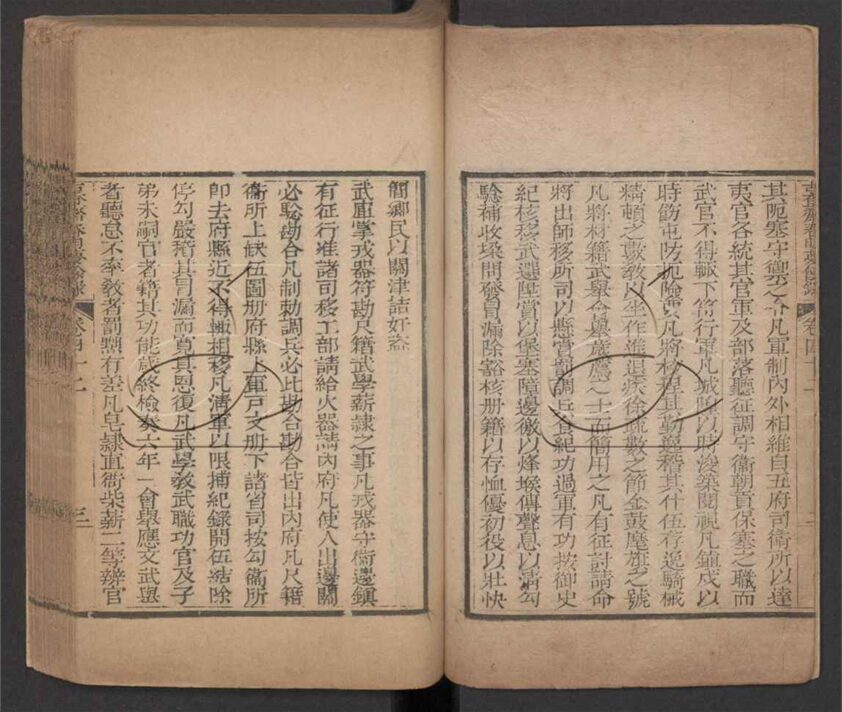 其阨塞守禦之令凡軍制內外相維自五府司衛所以達
夷官各統其官軍及部落聽征調守衞朝貢保塞之職而
武官不得輒下符行軍凡城隍以時浚築閱視凡鎮戍以
時飭屯防扼險凡將校程其勤惰稽其什伍存逸騎械
精頓之數教以坐作進退疾徐疏數之節金鼓麾旗之號
凡將材籍武舉會舉歲應之士而簡用之凡有征討請命
將出師移所司以縣賞罰調兵食紀功過軍有功按御史
紀核移武選陞賞以堡塞障邊徼以烽堠傳聲息以清勾
騐補收垜問發冒漏除豁核册籍以存恤優初役以壯快
簡鄉民以關津詰奸盜
武庫掌戎器符勘尺籍武學薪隸之事凡戎器守衞邊鎮
有征行准諸司移工部請給火器請內府凡使人出邊關
必騐勘合凡制勅調兵必此勘合勘合皆出內府凡尺籍
衞所上缺伍圖册府縣上軍戶文册下諸省司按勾衞所
卽去府縣近不得輒相移凡清軍以限捕紀錄開伍結除
停勾嚴稽其冒漏而寬其恩復凡武學敎武職功官及子
弟未嗣官者籍其功能歲終檢奏六年一會舉應文武舉
者聽息不率敎者罰黜有差凡皂隸直衙柴薪二等辨官
卷四十二
三